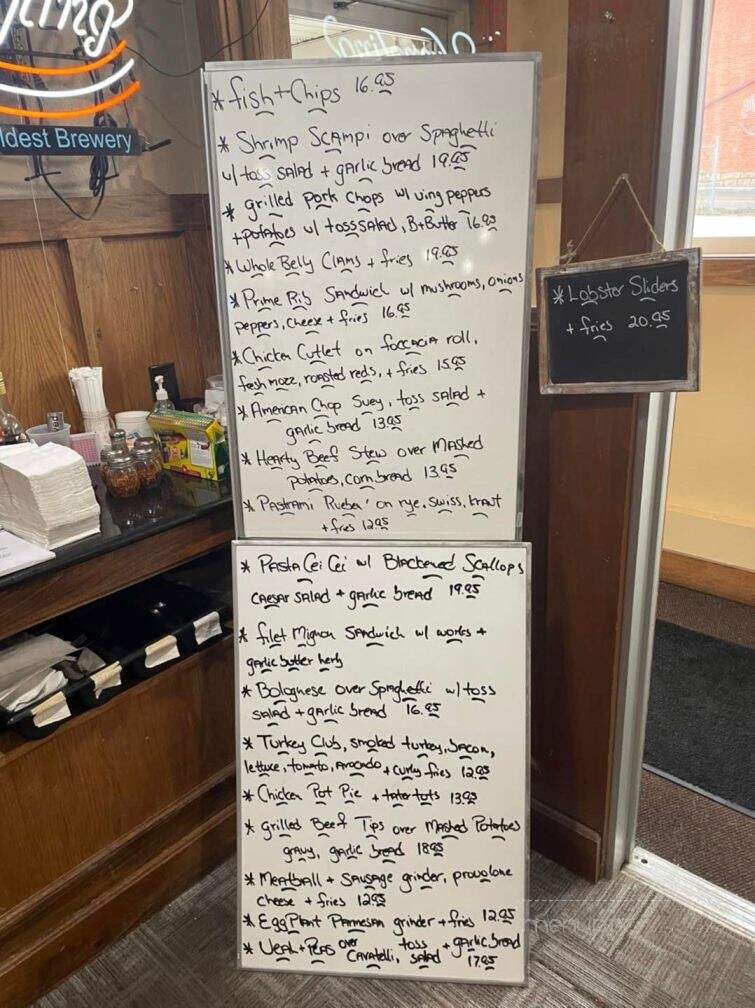 ldest Brewery
* fish + Chips 16.95
* Shrimp Scampi over Spaghetti
w/ toss salad + garlic bread 19.95
* grilled Pork Chops w/ ving peppers
+ potatoes w/ toss salad, B+Butter 16.95
* Whole Belly Clams + fries 19.95
* Prime Rib Sandwich w/ mushrooms, onions
peppers, cheese + fries 16.95
* Chicken Cutlet on foccacia roll,
fresh mozz, roasted reds, + fries 15.95
* American Chop Suey, toss salad +
garlic bread 13.95
* Hearty Beef Stew over Mashed
potatoes, corn bread 13.95
* Pastrami Rueben on rye, swiss, kraut
+ fries 12.95
* Pasta Cei Cei w/ Blackened Scallops
caesar salad + garlic bread 19.95
* filet Mignon Sandwich w/ works +
garlic butter herb
* Bolognese over Spaghetti w/ toss
salad + garlic bread 16.95
* Turkey Club, smoked turkey, bacon,
lettuce, tomato, avocado + curly fries 12.95
* Chicken Pot Pie + tater tots 13.95
* grilled Beef Tips over Mashed Potatoes
gravy, garlic bread 18.95
* Meatball + Sausage grinder, provolone
cheese + fries 12.95
* EggPlant Parmesan grinder + fries 12.95
* Veal + Peas over Cavatelli, toss salad + garlic bread
17.95
* Lobster Sliders
+ fries 20.95